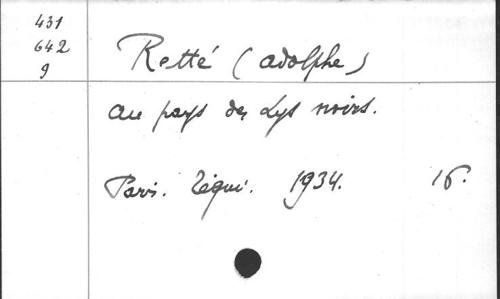 431
642
9
Retté (adolphe)
au pays des Lys noirs.
Paris. Téqui. 1934. 16.